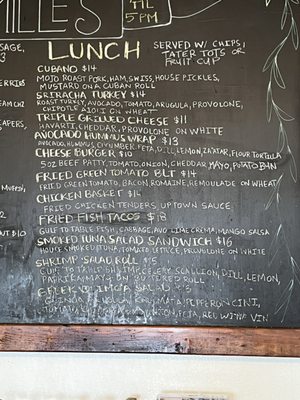 'TIL
5PM
LUNCH
SERVED W/ CHIPS,
TATER TOTS OR
FRUIT CUP
CUBANO $14
MOJO ROAST PORK, HAM, SWISS, HOUSE PICKLES,
MUSTARD ON A CUBAN ROLL
SRIRACHA TURKEY $14
ROAST TURKEY, AVOCADO, TOMATO, ARUGULA, PROVOLONE,
CHIPOTLE AIOLI ON WHEAT
TRIPLE GRILLED CHEESE $11
HAVARTI, CHEDDAR, PROVOLONE ON WHITE
AVOCADO HUMMUS WRAP $13
AVOCADO, HUMMUS, CUCUMBER, FETA, DILL, LEMON, ZA'ATAR, FLOUR TORTILLA
CHEESE BURGER $10
5OZ BEEF PATTY, TOMATO, ONION, CHEDDAR, MAYO, POTATO BUN
FRIED GREEN TOMATO BLT $14
FRIED GREEN TOMATO, BACON, ROMAINE, REMOULADE ON WHEAT
CHICKEN BASKET $14
FRIED CHICKEN TENDERS, UPTOWN SAUCE
FRIED FISH TACOS $18
GULF TO TABLE FISH, CABBAGE, AVO LIME CREMA, MANGO SALSA
SMOKED TUNA SALAD SANDWICH $16
HOUSE SMOKED TUNA, TOMATO, LETTUCE, PROVOLONE ON WHITE
SHRIMP SALAD ROLL $15
GULF TO TABLE SHRIMP, CELERY, SCALLION, DILL, LEMON,
ROLL
GREEK SALAD
PEPPERONCINI,
ONION, FETA, RED WINE VIN